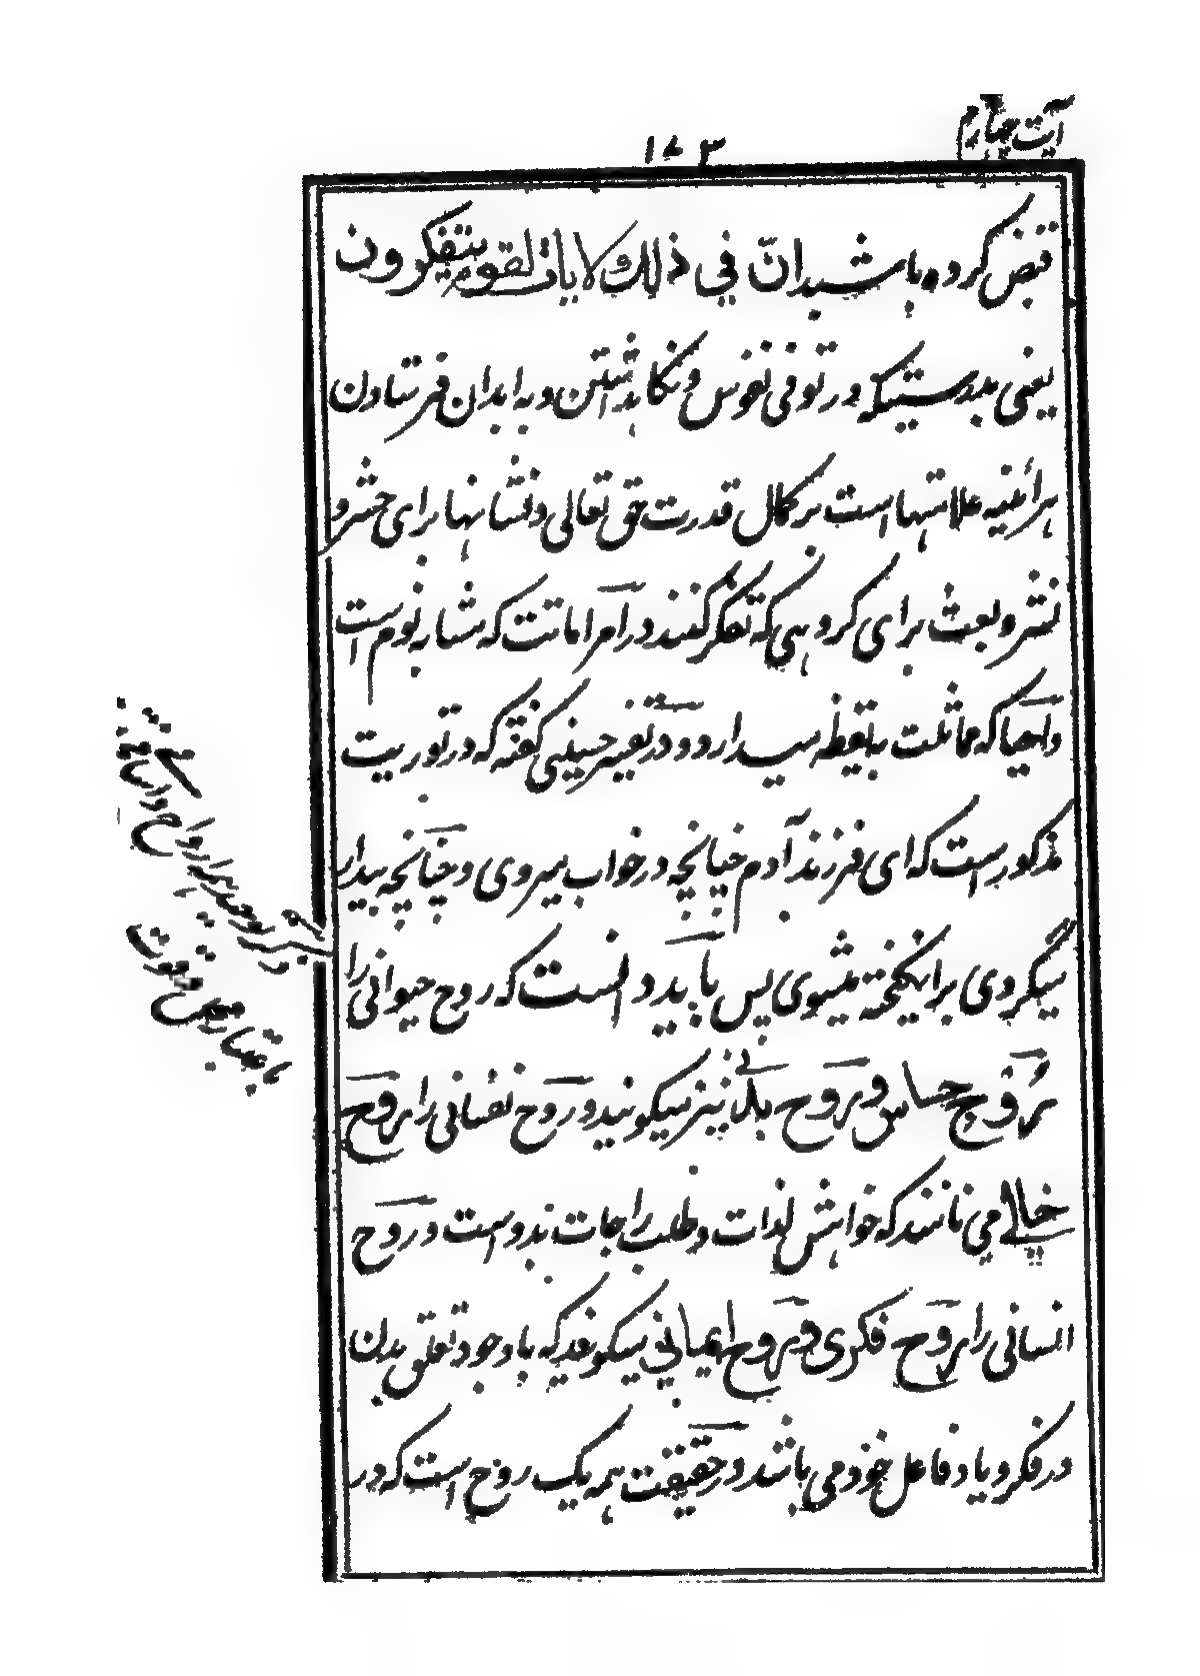 آیت چهارم
۱۷۳
قبض کرده باشد انّ فی ذلك لایات لقوم یتفکرون
یعنی بدرستیکه در توفی نفوس و نگاهداشتن و به ابدان فرستادن
هرآئینه علامتهاست بر کمال قدرت حق تعالی و نشانها برای حشر و
نشر و بعث برای گروهی که تفکر کنند در امر اماتت که مشابه نوم است
و احیا که مماثلت بیقظه میدارد و در تفسیر حسینی گفته که در توریت
مذکور است که ای فرزند آدم چنانچه در خواب میروی و چنانچه بیدار
میگردی برانگیخته میشوی پس باید دانست که روح حیوانی را
بروح حساس و بروح بلانی نیز میگویند و روح نفسانی را بروح
خیالی می نامند که خواهش لذات و طلب راحات بدوست و روح
انسانی را بروح فکری و بروح ایمانی میگویند که باوجود تعلق بدن
در فکر و یاد فاعل خود می باشد و در حقیقت همه یک روح است که در
باعتبار محل و قوت